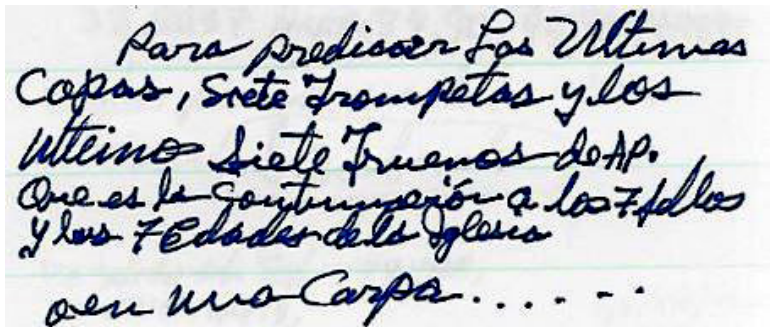 Para predicar Las Ultimas
Copas, Siete Trompetas y los
Ultimo Siete Truenos de AP.
Que es la Continuación a los 7 sellos
y las 7 Edades de la Iglesia
o en una Carpa......